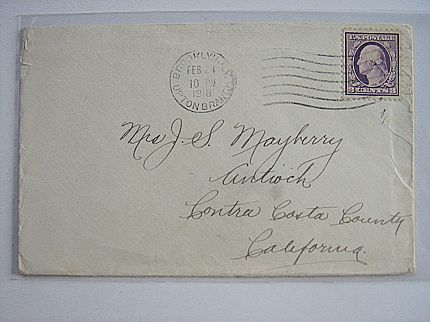 BROOKLYN, N.Y.
FEB 24
10 PM
1918
UPTON BRANCH
U.S. POSTAGE
3 CENTS 3
Mrs J. S. Mayberry
Antioch
Contra Costa County
California.